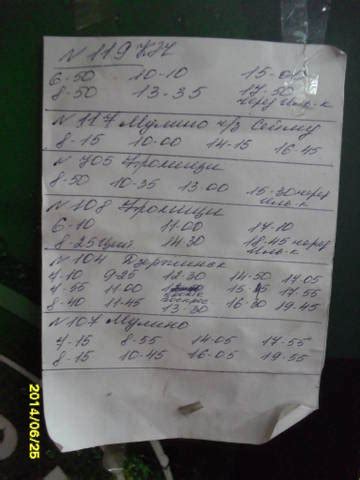 N 119 КЖ
6-50 10-10 15-01
8-50 13-35 17-50
через Иль-к
N 117 Мулино ч/з Сейму
8-15 10-00 14-15 16-45
N 105 Фролищи
8-50 10-35 13-00 15-30 через
Иль-к
N 108 Фролищи
6-10 11-00 17-10
8-25 14-30 18-45 через
Иль-к
N 104 Дзержинск
9-25 12-30 14-50 17-05
11-00 15-45 17-55
8-40 11-45 13-30 16-30 19-45
N 107 Мулино
7-15 8-55 14-05 17-55
8-15 10-45 16-05 19-55
2014/06/25